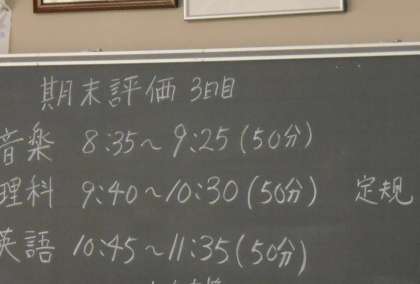 期末評価 3日目
音楽 8:35~9:25(50分)
理科 9:40~10:30(50分) 定規
英語 10:45~11:35(50分)